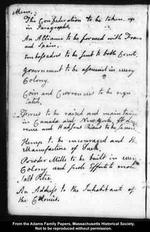 Mem.
The Confederation to be taken up in Paragraphs.
An Alliance to be formed with France and Spain.
Embassadors to be sent to both Courts.
Government to be assumed in every Colony.
Coin and Currencies to be regulated.
Forces to be raised and maintained in Canada and New York. St. Lawrence and Hudsons Rivers to be secured.
Hemp to be encouraged and the Manufacture of Duck.
Powder Mills to be built in every Colony, and fresh Efforts to make Salt Petre.
An Address to the Inhabitants of the Colonies.
From the Adams Family Papers, Massachusetts Historical Society.
Not to be reproduced without permission.